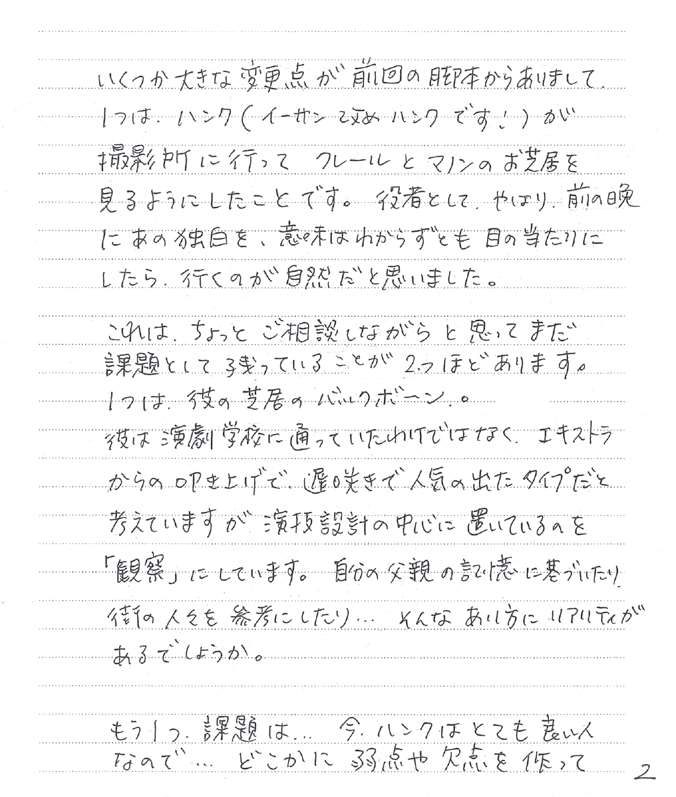 いくつか大きな変更点が前回の脚本からありまして、
1つは、ハンク(イーサン改めハンクです!)が
撮影所に行って クレールとマノンのお芝居を
見るようにしたことです。役者として、やはり、前の晩
にあの独白を、意味はわからずとも目の当たりに
したら、行くのが自然だと思いました。
これは、ちょっとご相談しながらと思ってまだ
課題として残っていることが2つほどあります。
1つは、彼の芝居のバックボーン。
彼は演劇学校に通っていたわけではなく、エキストラ
からの叩き上げで、遅咲きで人気の出たタイプだと
考えていますが 演技設計の中心に置いているのを
「観察」にしています。自分の父親の記憶に基づいたり
街の人々を参考にしたり… そんなあり方にリアリティが
あるでしょうか。
もう1つ、課題は… 今、ハンクはとても良い人
なので… どこかに弱点や欠点を作って
2